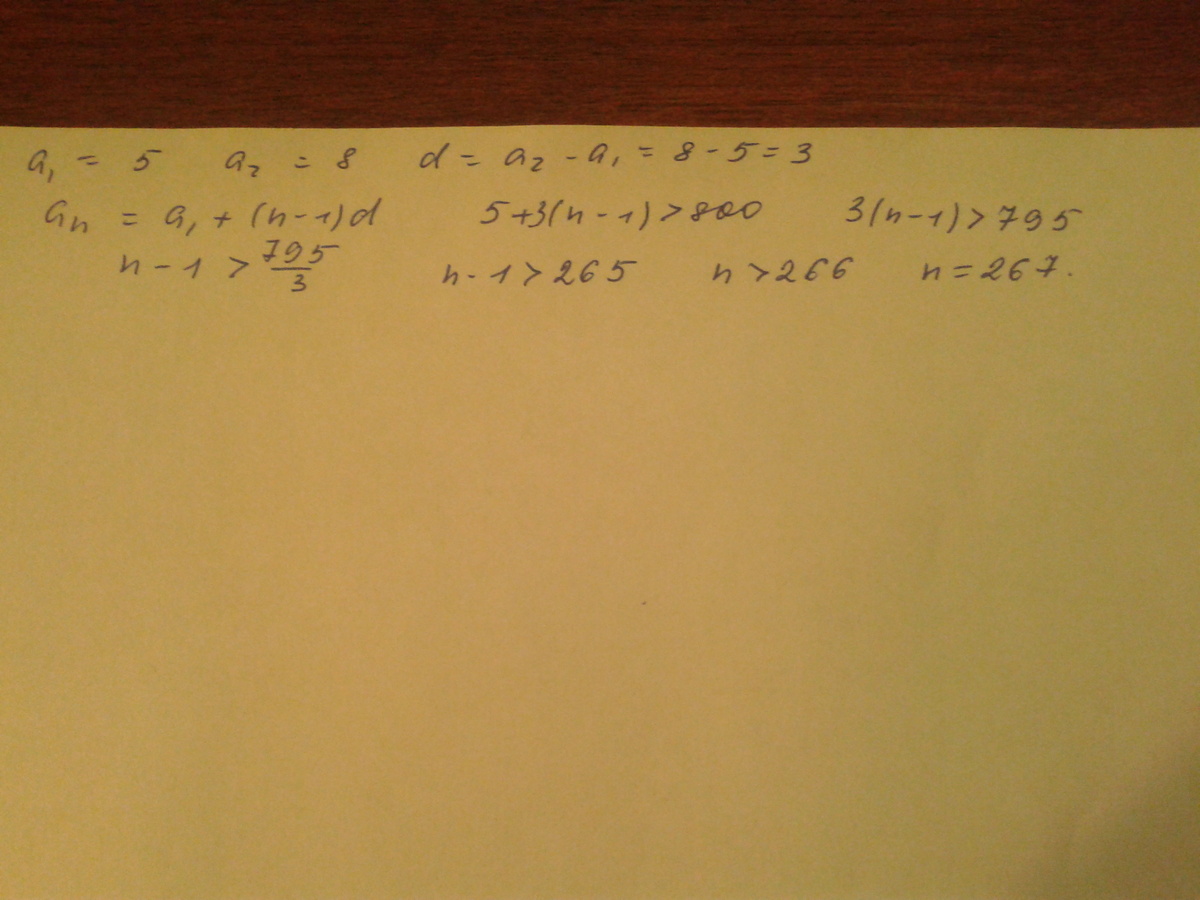 a₁ = 5 a₂ = 8 d = a₂ - a₁ = 8 - 5 = 3
aₙ = a₁ + (n-1)d 5+3(n-1)>800 3(n-1)>795
n-1 > 795/3 n-1>265 n>266 n=267.